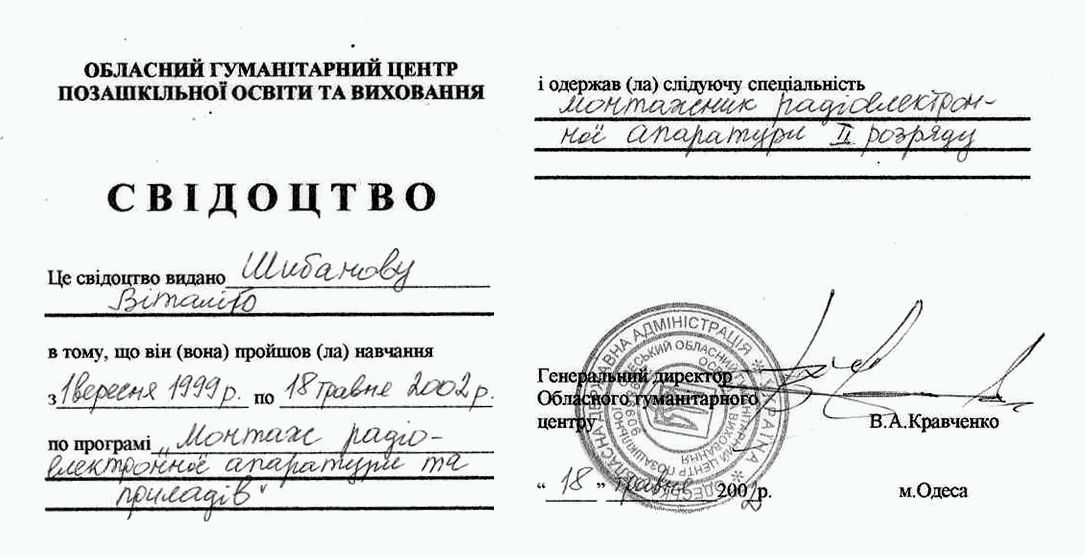 ОБЛАСНИЙ ГУМАНІТАРНИЙ ЦЕНТР
ПОЗАШКІЛЬНОЇ ОСВІТИ ТА ВИХОВАННЯ
СВІДОЦТВО
Це свідоцтво видано Шибанову
Віталію
в тому, що він (вона) пройшов (ла) навчання
з 1 вересня 1999 р. по 18 травня 2002 р.
по програмі „Монтаж радіо-
електронної апаратури та
приладів“
і одержав (ла) слідуючу спеціальність
монтажник радіоелектрон-
ної апаратури II розряду
Генеральний директор
Обласного гуманітарного
центру В.А.Кравченко
“ 18 ” травня 2002 р. м.Одеса
ОДЕСЬКА ОБЛАСНА ДЕРЖАВНА АДМІНІСТРАЦІЯ * УКРАЇНА *